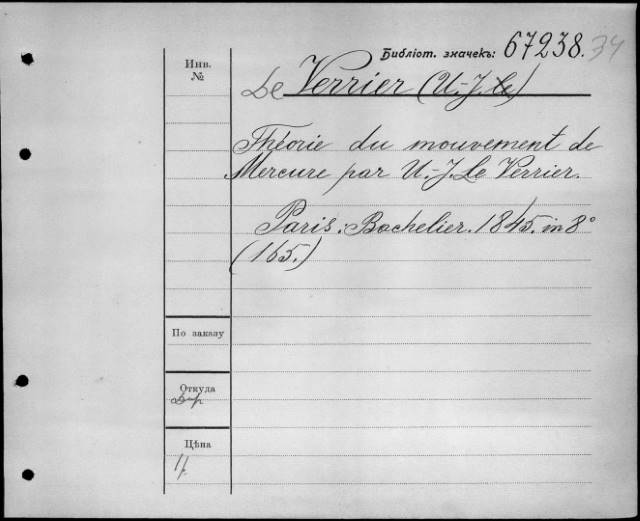 Библіот. значекъ: 67238. 34
Инв.
№
Le Verrier (U.-J. Le)
Théorie du mouvement de
Mercure par U.-J. Le Verrier.
Paris. Bachelier. 1845. in 8°
(165.)
По заказу
Откуда
Цѣна